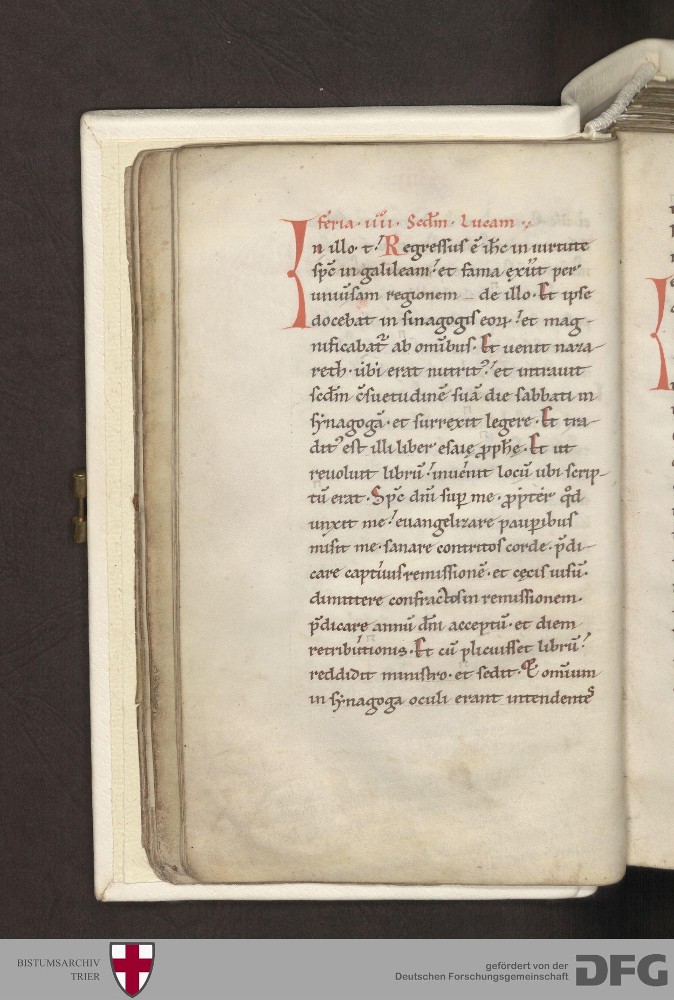 feria · iiii · Scdm̄ · Lucam ·
In illo · t · Regressus ē ihc in uirtute
sp̄c in galileam · et fama exiit per
uniuersam regionem de illo · Et ipse
docebat in sinagogis eoꝝ · et mag-
nificabat᷑ ab omībus · Et uenit naza-
reth · ubi erat nutrit᷒ · et intrauit
scdm̄ c̄suetudinē suā die sabbati in
synagogā · et surrexit legere · Et tra-
dit᷒ est illi liber esaię ꝓph̄ę · Et ut
reuoluit librū · inuenit locū ubi scrip-
tū erat · Sp̄c dn̄i suꝑ me · ꝓpter qd̄
unxit me · euangelizare pauꝑibus
misit me · sanare contritos corde · p̄di-
care captiuis remissionē · et cęcis uisū ·
dimittere confractos in remissionem ·
p̄dicare annū dn̄i acceptū · et diem
retributionis · Et cū plicuisset librū ·
reddidit ministro · et sedit · Et omium
in synagoga oculi erant intendentes
BISTUMSARCHIV
TRIER
gefördert von der
Deutschen Forschungsgemeinschaft
DFG